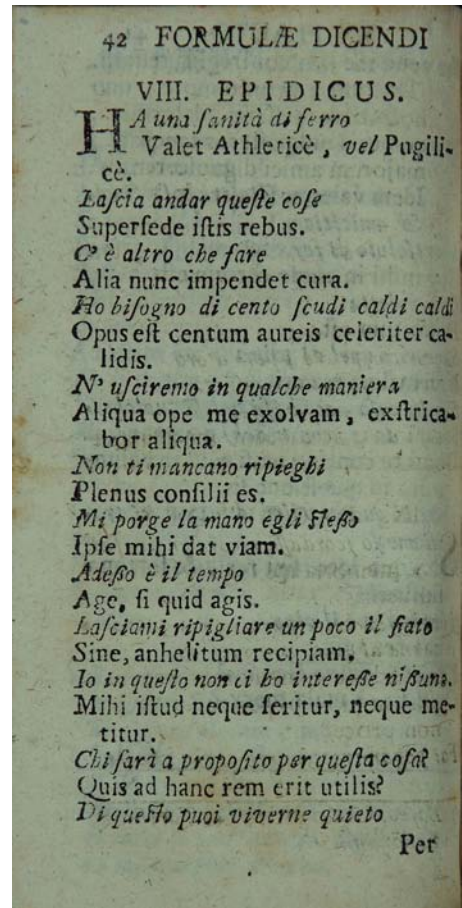 42 FORMULÆ DICENDI
VIII. EPIDICUS.
HA una ſanità di ferro
Valet Athleticè, vel Pugili-
cè.
Laſcia andar queſte coſe
Superſede iſtis rebus.
C' è altro che fare
Alia nunc impendet cura.
Ho biſogno di cento ſcudi caldi caldi
Opus eſt centum aureis celeriter ca-
lidis.
N' uſciremo in qualche maniera
Aliquà ope me exolvam, exſtrica-
bor aliqua.
Non ti mancano ripieghi
Plenus conſilii es.
Mi porge la mano egli ſteſſo
Ipſe mihi dat viam.
Adeſſo è il tempo
Age, ſi quid agis.
Laſciami ripigliare un poco il fiato
Sine, anhelitum recipiam.
Io in queſto non ci ho intereſſe niſſuno.
Mihi iſtud neque ſeritur, neque me-
titur.
Chi farì a propoſito per queſta coſa?
Quis ad hanc rem erit utilis?
Di queſto puoi viverne quieto
Per